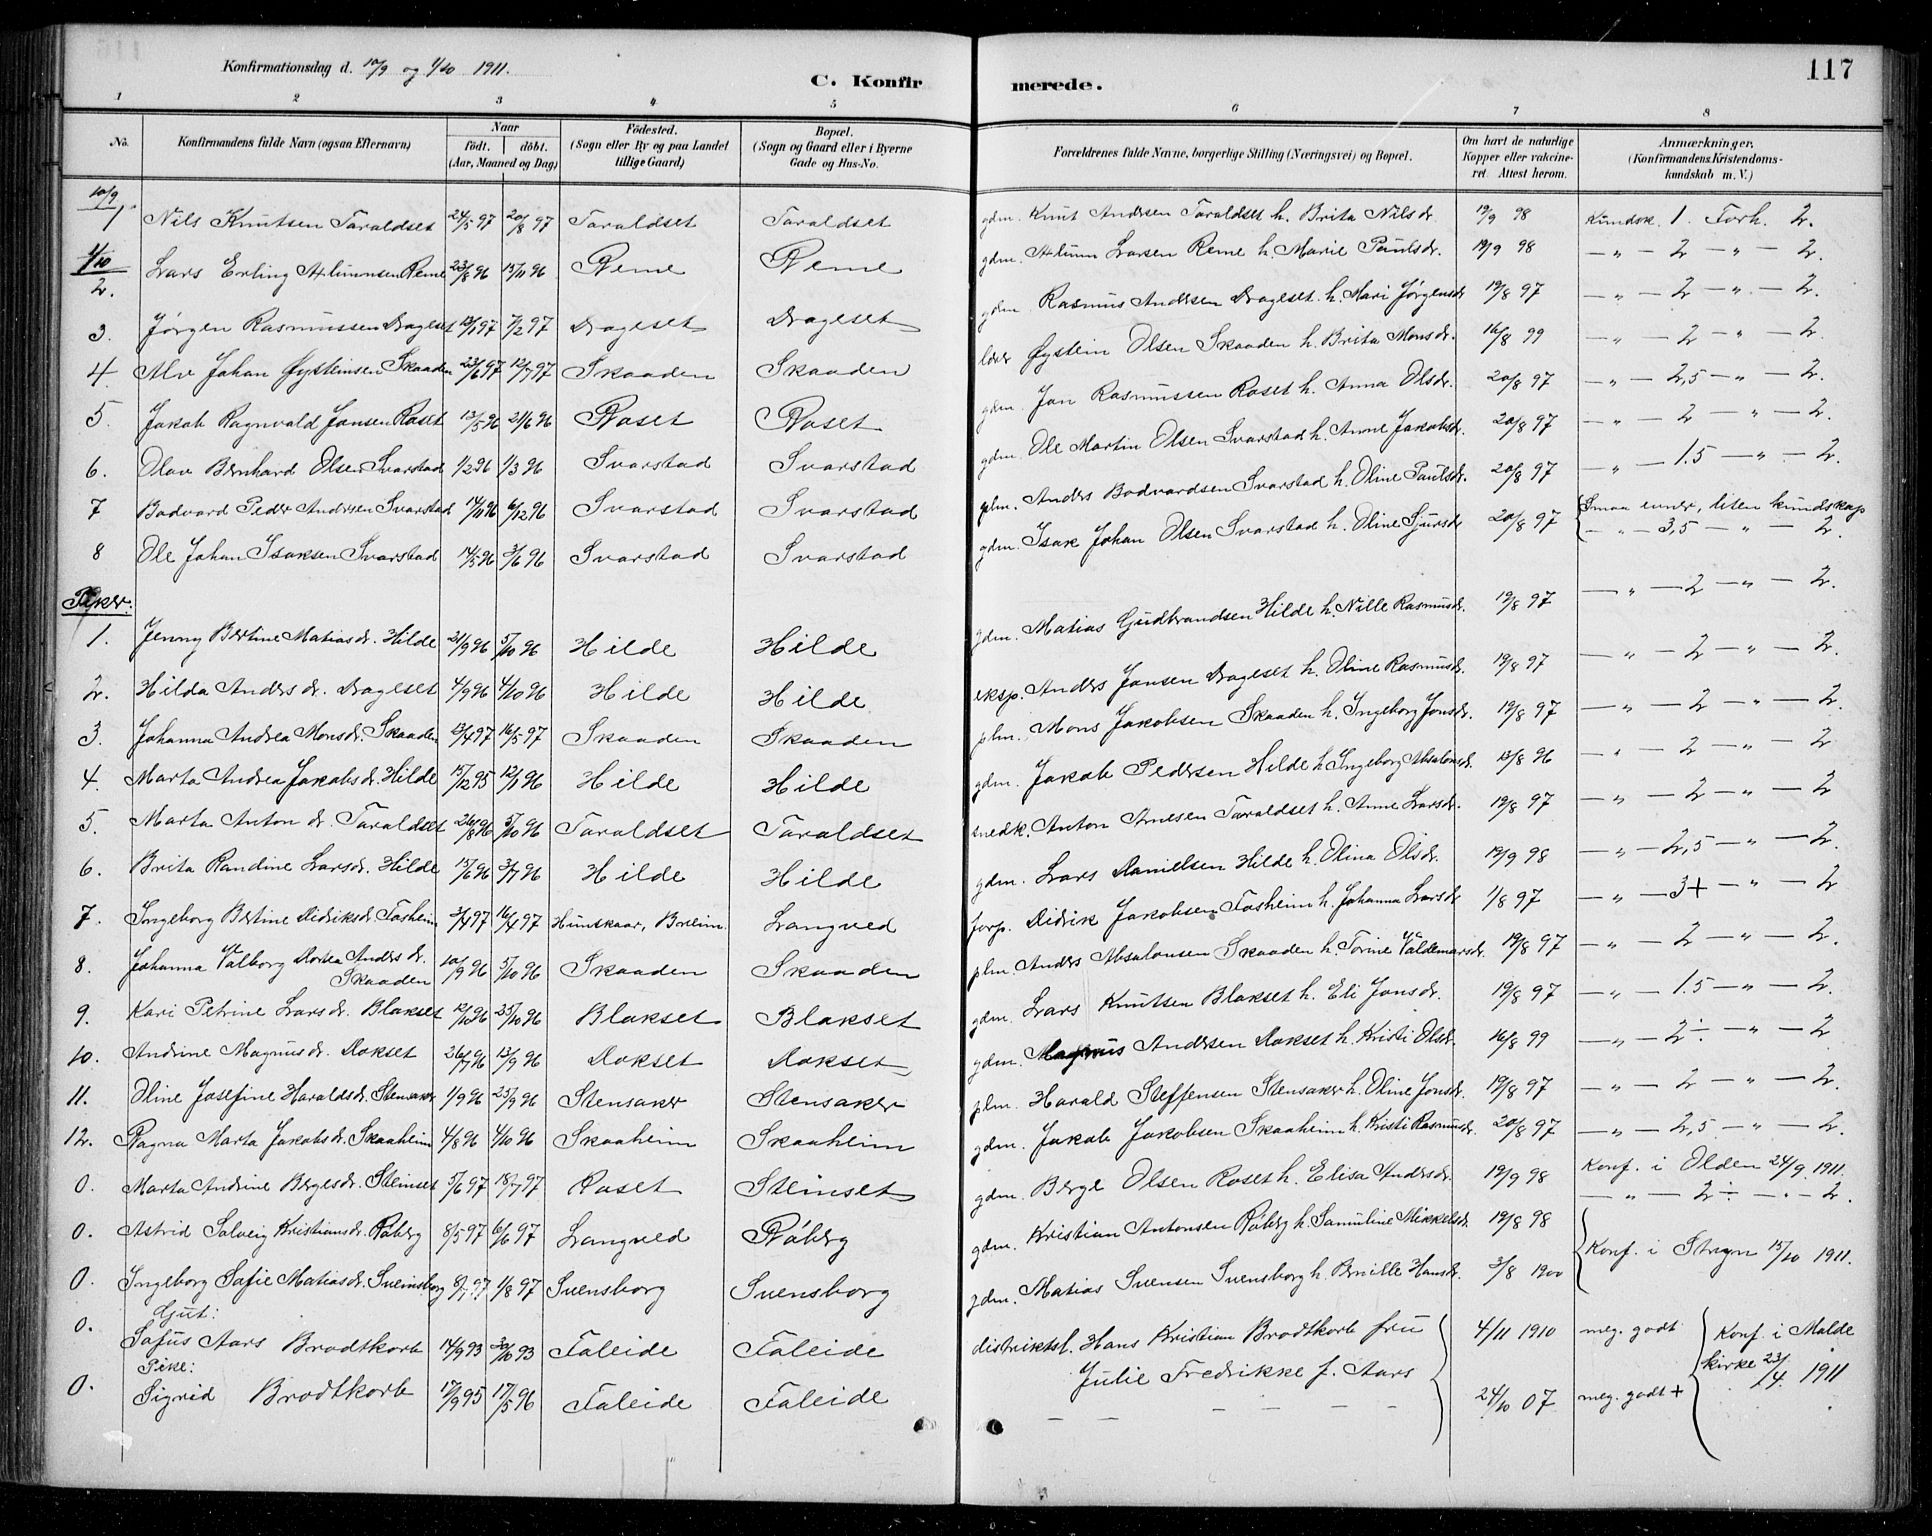 Konfirmationsdag d. 10/9 og 1/10 1911.
C. Konfirmerede.
117
1 2 3 4 5 6 7 8
No. Konfirmandens fulde Navn (ogsaa Efternavn) Naar født. døbt. (Aar, Maaned og Dag) Fødested. (Sogn eller By og paa Landet tillige Gaard) Bopæl. (Sogn og Gaard eller i Byerne Gade og Hus-No. Forældrenes fulde Navne, borgerlige Stilling (Næringsvei) og Bopæl. Om havt de naturlige Kopper eller vakcineret. Attest herom. Anmærkninger. (Konfirmandens Kristendomskundskab m. V.)
10/9
1 Nils Knutsen Taraldset 24/5 97 20/8 97 Taraldset Taraldset gdm. Knut Andersen Taraldset h. Brita Nilsdr. 19/9 98 Kundsk. 1. Forh. 2.
1/10
2. Lars Erling Hlumnsen Reme 23/8 96 15/11 96 Reme Reme gdm. Larsen Reme h. Marie Paulsdr. 19/9 98 — „ — 2 — „ — 2.
3. Jørgen Rasmussen Drageset 13/1 97 7/2 97 Drageset Drageset gdm. Rasmus Andersen Drageset h. Mari Jørgensdr 19/8 97 — „ — 2 — „ — 2.
4. Alv Johan Øysteinsen Skaaden 23/6 97 12/7 97 Skaaden Skaaden lærer Øystein Olsen Skaaden h. Brita Monsdr. 16/8 99 — „ — 2 — „ — 2
5. Jakob Ragnvald Jonsen Roset 13/5 96 21/6 96 Roset Roset gdm. Jon Rasmussen Roset h. Anna Olsdr. 20/8 97 — „ — 2,5 — „ — 2.
6. Olav Bernhard Olsen Svarstad 1/2 96 1/3 96 Svarstad Svarstad gdm. Ole Martin Olsen Svarstad h. Anne Jakobsdr. 20/8 97 — „ — 2 — „ — 2.
7 Bodvard Peder Andersen Svarstad 14/11 96 6/12 96 Svarstad Svarstad plm. Anders Bodvardsen Svarstad h. Oline Paulsdr. 20/8 97 — „ — 1.5 — „ — 2.
8 Ole Johan Isaksen Svarstad 14/5 96 3/6 96 Svarstad Svarstad gdm. Isak Johan Olsen Svarstad h. Oline Sjursdr 20/8 97 Smaa evner, liten kundskap — „ — 3,5 — „ — 2.
Piker:
1. Jenny Bertine Matiasdr. Hilde 21/9 96 5/10 96 Hilde Hilde gdm. Matias Gudbrandsen Hilde h. Nille Rasmusdr. 19/8 97 — „ — 2 — „ — 2.
2. Hilda Andersdr. Drageset 4/9 96 4/10 96 Hilde Hilde eksp. Anders Jonsen Drageset h. Oline Rasmusdr. 19/8 97 — „ — 2 — „ — 2.
3. Johanna Andrea Monsdr. Skaaden 13/4 97 16/5 97 Skaaden Skaaden plm. Mons Jakobsen Skaaden h. Ingeborg Jonsdr. 19/8 97 — „ — 2 — „ — 2
4. Marta Andrea Jakobsdr. Hilde 15/12 95 12/1 96 Hilde Hilde gdm. Jakob Pedersen Hilde h. Ingeborg Absalonsdr. 13/8 96 — „ — 2 — „ — 2
5. Marta Antondr. Taraldset 26/8 96 5/10 96 Taraldset Taraldset snedk. Anton Arnesen Taraldset h. Anne Larsdr. 19/8 97 — „ — 2 — „ — 2
6. Brita Randine Larsdr. Hilde 15/6 96 3/7 96 Hilde Hilde gdm. Lars Danielsen Hilde h. Olina Olsdr. 19/9 98 — „ — 2,5 — „ — 2.
7. Ingeborg Bertine Didriksdr. Fosheim 3/4 97 16/4 97 Hunskaar, Breim. Langved forp. Didrik Jakobsen Fosheim h. Johanna Larsdr 1/8 97 — „ — 3+ — „ — 2
8. Johanna Valborg Dortea Andersdr. Skaaden 10/9 96 5/10 96 Skaaden Skaaden plm. Anders Absalonsen Skaaden h. Torine Valdemarsdr. 19/8 97 — „ — 2 — „ — 2.
9. Kari Petrine Larsdr. Blakset 12/10 96 25/10 96 Blakset Blakset gdm. Lars Knutsen Blakset h. Eli Jonsdr. 19/8 97 — „ — 1.5 — „ — 2.
10. Andrine Magnusdr. Dokset 26/7 96 13/9 96 Dokset Dokset gdm. Magnus Andersen Dokset h. Kristi Olsdr. 16/8 99 — „ — 2÷ — „ — 2
11. Oline Josefine Haraldsdr. Stensaker 1/9 96 25/9 96 Stensaker Stensaker plm. Harald Steffensen Stensaker h. Oline Jonsdr. 19/8 97 — „ — 2 — „ — 2.
12. Ragna Marta Jakobsdr. Skaaheim 4/8 96 4/10 96 Skaaheim Skaaheim gdm. Jakob Jakobsen Skaaheim h. Kristi Rasmusdr. 20/8 97 — „ — 2,5 — „ — 2.
0. Marta Andrine Bergesdr. Steinset 5/6 97 18/7 97 Roset Steinset gdm. Berge Olsen Roset h. Elisa Andersdr. 19/9 98 Konf. i Olden 24/9 1911. — „ — 2÷ — „ — 2.
0. Astrid Solveig Kristiansdr. Røberg 8/5 97 6/6 97 Langved Røberg gdm. Kristian Antonsen Røberg h. Samuline Mikkelsdr. 19/8 98 Konf. i Stryn 15/10 1911.
0. Ingeborg Sofie Matiasdr. Svensborg 8/7 97 1/8 97 Svensborg Svensborg gdm. Matias Svensen Svensborg h. Brnille Hansdr. 3/8 1900
Gut:
0. Sofus Aars Brodtkorb 14/9 93 30/10 93 Faleide Faleide distriktsl. Hans Kristian Brodtkorb fru 4/11 1910 meg. godt Konf. i Molde kirke 23/4. 1911
Pike:
0. Sigrid Brodtkorb 17/9 95 17/5 96 Faleide Faleide Julie Fredrikke f. Aars 24/10 07 meg. godt +